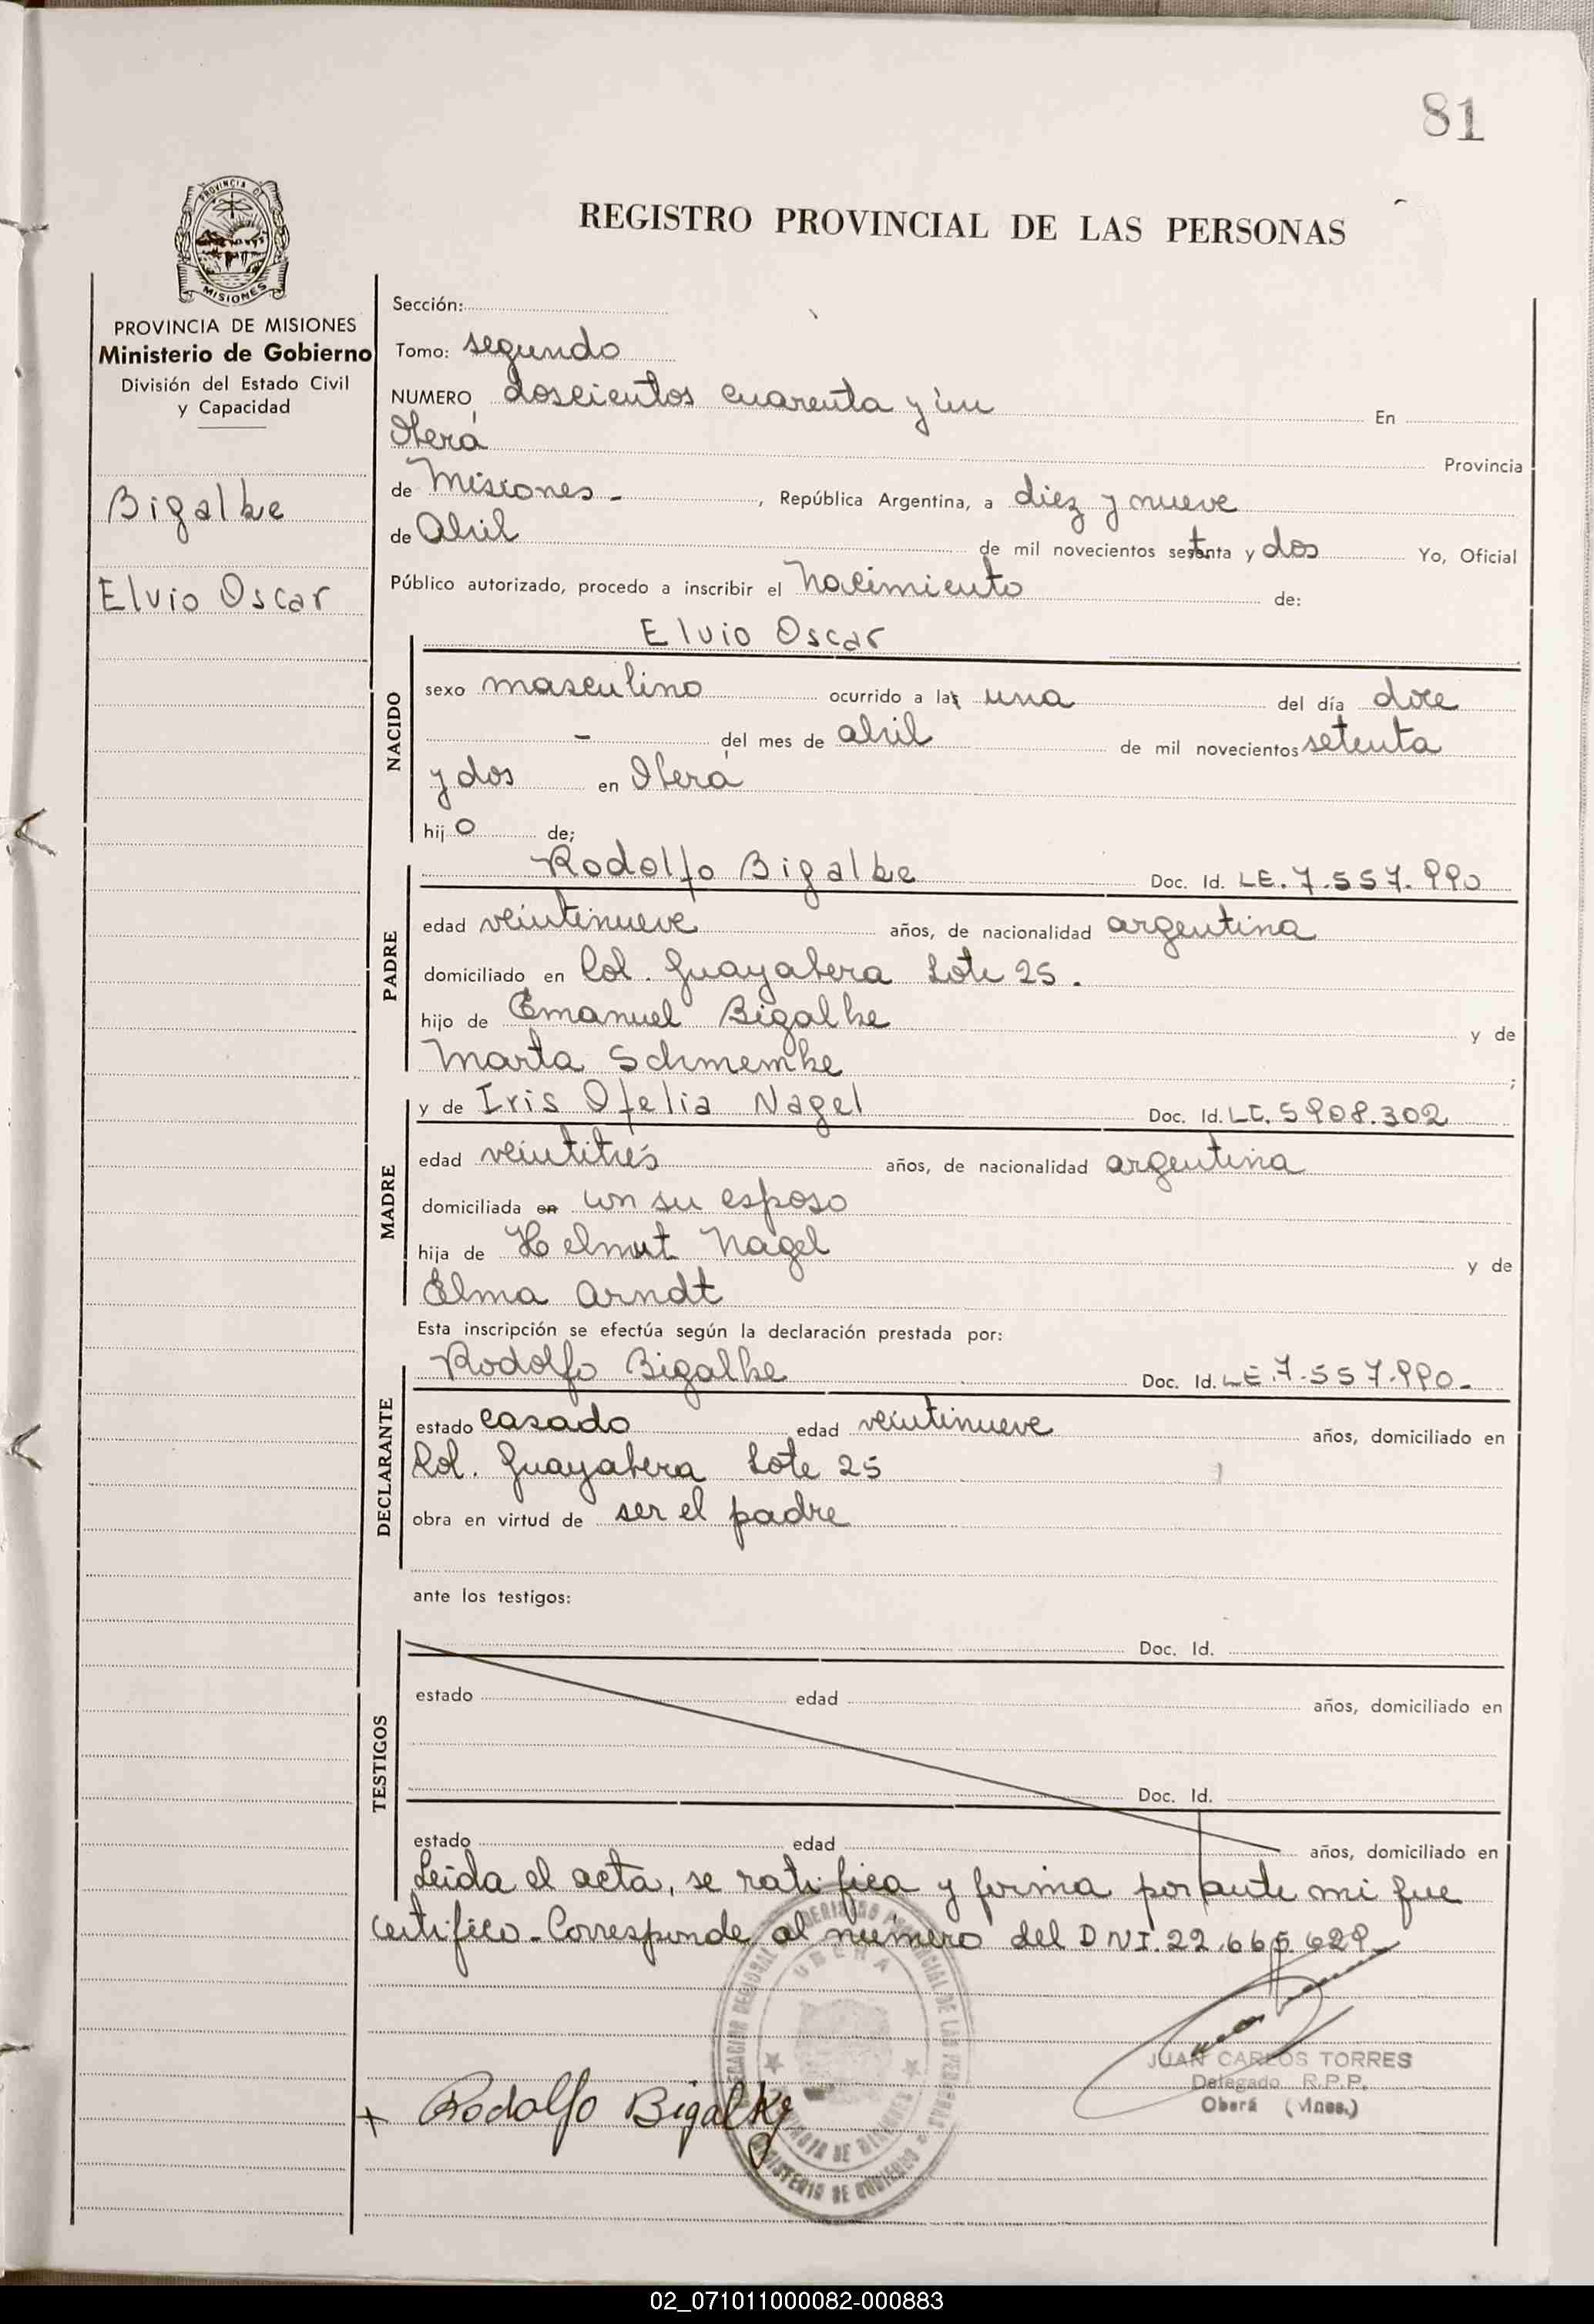 81
PROVINCIA DE MISIONES
REGISTRO PROVINCIAL DE LAS PERSONAS
PROVINCIA DE MISIONES
Ministerio de Gobierno
División del Estado Civil
y Capacidad
Bigalke
Elvio Oscar
Sección:
Tomo: segundo
NUMERO doscientos cuarenta y un En
Oberá Provincia
de Misiones - , República Argentina, a diez y nueve
de Abril de mil novecientos setenta y dos Yo, Oficial
Público autorizado, procedo a inscribir el Nacimiento de:
Elvio Oscar
NACIDO
sexo masculino ocurrido a la una del día doce
- del mes de abril de mil novecientos setenta
y dos en Oberá
hijo de;
PADRE
Rodolfo Bigalke Doc. Id. LE. 7.557.990
edad veintinueve años, de nacionalidad argentina
domiciliado en Col. Guayabera Lote 25.
hijo de Emanuel Bigalke y de
Marta Schmemke ;
MADRE
y de Iris Ofelia Nagel Doc. Id. LC. 5908.302
edad veintitrés años, de nacionalidad argentina
domiciliada en con su esposo
hija de Helmut Nagel y de
Elma Arndt
Esta inscripción se efectúa según la declaración prestada por:
DECLARANTE
Rodolfo Bigalke Doc. Id. LE. 7.557.990-
estado casado edad veintinueve años, domiciliado en
Col. Guayabera Lote 25
obra en virtud de ser el padre
ante los testigos:
TESTIGOS
Doc. Id.
estado edad años, domiciliado en
Doc. Id.
estado edad años, domiciliado en
Leída el acta, se ratifica y firma por ante mi que
certifico. Corresponde al número del DNI. 22.665.629-
OBERA
MINISTERIO DE GOBIERNO
JUAN CARLOS TORRES
Delegado R.P.P.
Oberá (Mnes.)
+ Rodolfo Bigalke
02_071011000082-000883